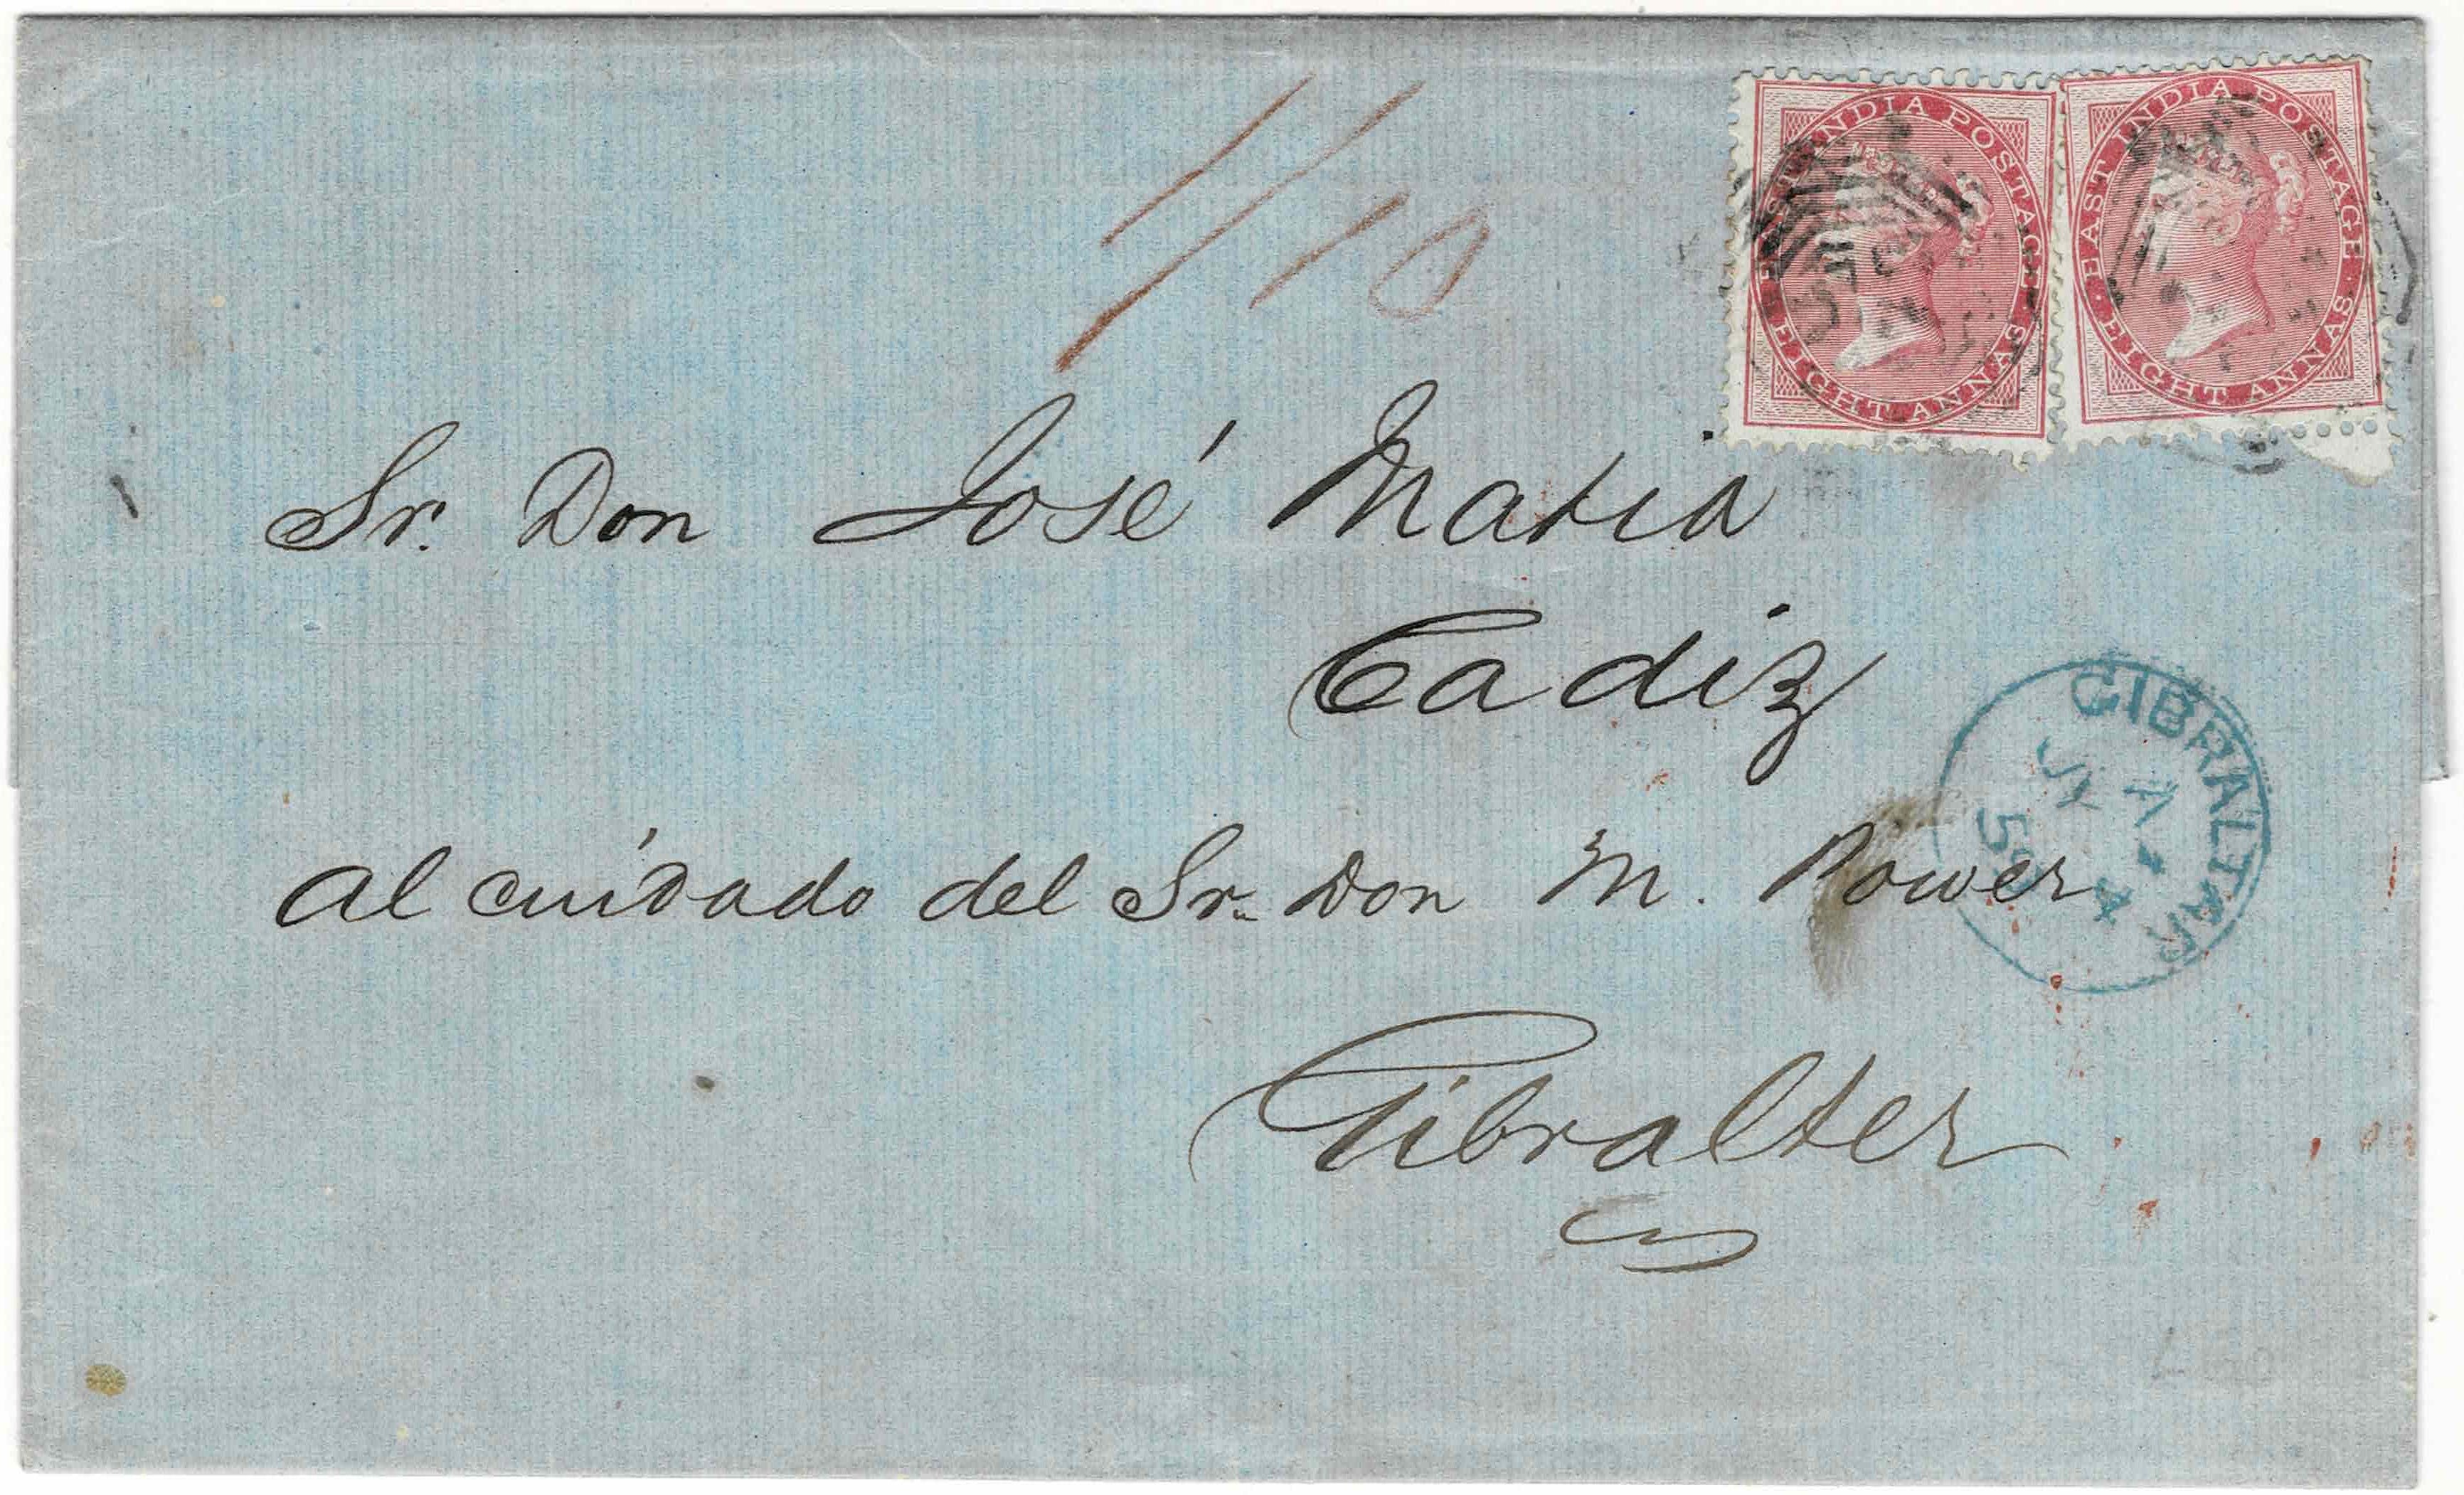 1/10
EAST INDIA POSTAGE
EIGHT ANNAS
EAST INDIA POSTAGE
EIGHT ANNAS
Sr. Don José Maria
Cadiz
al cuidado del Sr. Don M. Power
Gibralter
GIBRALTAR
A
JY 14